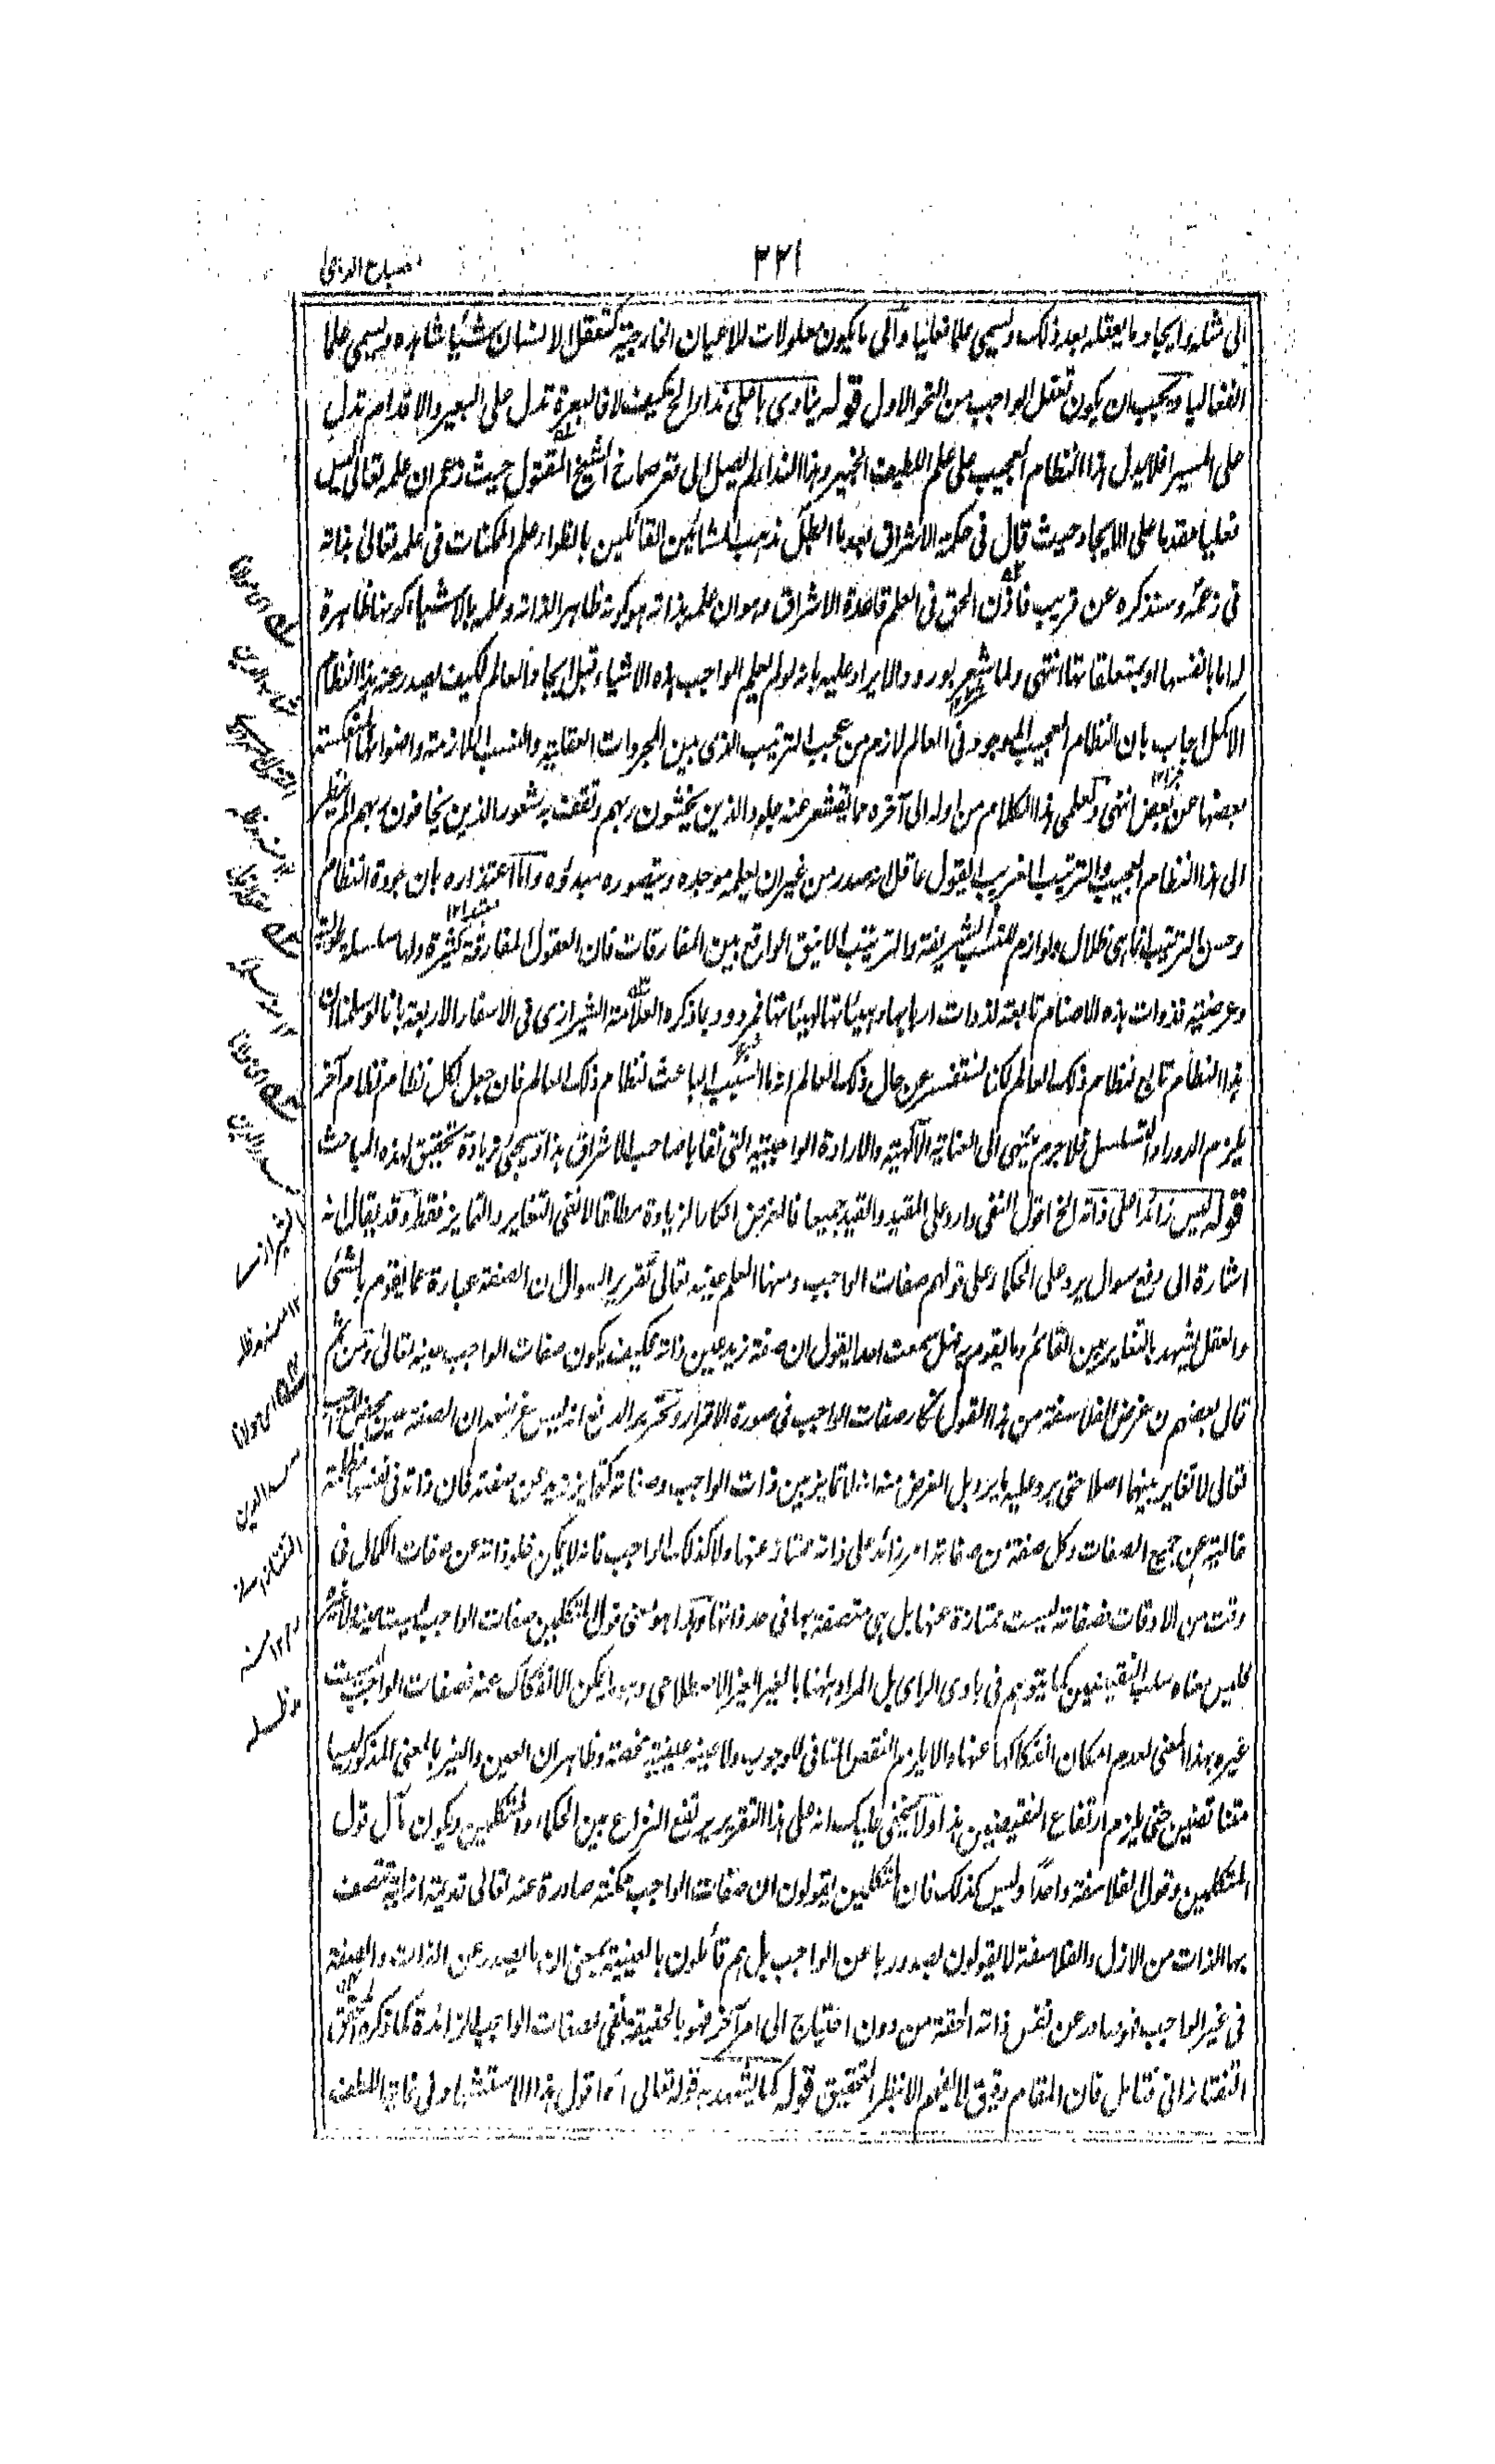 ۲۲۱
مصباح الدجى
الى مثله وايجاد ما يعقله بعد ذلك ويسمى علما فعليا والى ما يكون معلولات للاعيان الخارجية كتعقل الانسان شيئا شاهده ويسمى علما
انفعاليا ويجب ان يكون تعقل الواجب من النحو الاول قوله ينادى باعلى نداء الخ كيف لا فالبعرة تدل على البعير والاقدام تدل
على المسير افلا يدل هذا النظام العجيب على علم اللطيف الخبير وهذا النداء لم يصل الى قعر صماخ الشيخ المقتول حيث زعم ان علمه تعالى ليس
فعليا مقدما على الايجاد حيث قال فى حكمة الاشراق بعد ما ابطل مذهب المشائين القائلين بانطواء علم الممكنات فى علمه تعالى بذاته
فى زعمه وسنذكره عن قريب فاذن الحق فى العلم قاعدة الاشراق وهو ان علمه بذاته هو كونه ظاهر الذاته وعلمه بالاشياء كونها ظاهرة
له اما بانفسها او بمتعلقاتها انتهى ولما شعر بورود الايراد عليه بانه لو لم يعلم الواجب هذه الاشياء قبل ايجاد العالم فكيف يصدر عنه هذا النظام
الاكمل اجاب بان النظام العجيب الموجود فى العالم لازم من عجب الترتيب الذى بين المجردات العقلية والنسب اللازمة واضوائها المنعكسة
بعضها عن بعض انتهى ولعلمى هذا الكلام من اوله الى آخره مما تقشعر عنه جلود الذين يخشون ربهم وتقف به شعور الذين يخافون ربهم الم ينظر
الى هذا النظام العجيب والترتيب الغريب ايقول عاقل انه صدر من غير ان يعلمه موجده ويتصوره مبدئوه واما اعتذاره بان جودة النظام
وحسن الترتيب انما هى ظلال ولوازم للنسب الشريفة والترتيب الانيق الواقع بين المفارقات فان العقول المفارقة كثيرة ولها سلسلة طولية
وعرضية فذوات هذه الاصنام تابعة لذوات اربابها وهيئاتها لهيئاتها فمردود بما ذكره العلامة الشيرازى فى الاسفار الاربعة بانا لو سلمنا ان
هذا النظام تابع لنظام ذلك العالم لكان نستفسر عن حال ذلك العالم انه ما السبب الباعث لنظام ذلك العالم فان جعل لكل نظام نظام آخر
يلزم الدور او التسلسل فلا جرم ينتهى الى العناية الالهية والارادة الواجبية التى نفاها صاحب الاشراق هذا وسيجئ زيادة تحقيق لهذه المباحث
قوله ليس زائدا على ذاته الخ اقول النفى وارد على المقيد والقيد جميعا فالغرض انكار الزيادة مطلقا لا نفى التغاير والتمايز فقط وقد يقال انه
اشارة الى دفع سوال يرد على الحكماء على قولهم صفات الواجب ومنها العلم عينه تعالى تقرير السوال ان الصفة عبارة عما يقوم بالشئ
والعقل يشهد بالتغاير بين القائم وما يقوم به هل سمعت احدا يقول ان صفة زيد عين ذاته فكيف يكون صفات الواجب عينه تعالى ومن ثم
قال بعضهم ان غرض الفلاسفة من هذا القول انكار صفات الواجب فى صورة الاقرار وتحرير الدفع انه ليس غرضهم ان الصفة عين الواجب
تعالى لا تغاير بينهما اصلا حتى يرد عليه ما يرد بل الغرض منه انه لا تمايز بين ذات الواجب وصفاته كتمايز زيد عن صفته فان ذاته فى نفسها
خالية عن جميع الصفات وكل صفة من صفاته امر زائد على ذاته ممتاز عنها ولا كذلك الواجب فانه لا يمكن خلو ذاته عن صفات الكمال فى
وقت من الاوقات فصفاته ليست ممتازة عنها بل هى متصفة بها فى حد ذاتها وهذا هو معنى قول المتكلمين صفات الواجب ليست عينه ولا غيره
فليس معناه سلب النقيضين كما يتوهم فى بادى الراى بل المراد ههنا بالغير الغير الاصطلاحى وهو ما يمكن الانفكاك عنه فصفات الواجب ليست
غيره بهذا المعنى لعدم امكان انفكاكها عنها والا يلزم النقص المنافى للوجوب ولا عينه عينية محضة وظاهر ان العين والغير بالمعنى المذكور ليسا
متناقضين حتى يلزم ارتفاع النقيضين هذا ولا يخفى عليك انه على هذا التقرير يرتفع النزاع بين الحكماء والمتكلمين ويكون مآل قول
المتكلمين وقول الفلاسفة واحدا وليس كذلك فان المتكلمين يقولون ان صفات الواجب ممكنة صادرة عنه تعالى قديمة ازلية تتصف
بها الذات من الازل والفلاسفة لا يقولون بصدورها عن الواجب بل هم قائلون بالعينية بمعنى ان ما يصدر عن الذات والصفة
فى غير الواجب فهو صادر عن نفس ذاته الحقة من دون احتياج الى امر آخر فهو بالحقيقة نفى لصفات الواجب الزائدة كما ذكره المحقق
التفتازانى فتامل فان المقام دقيق لا يفهم الا بنظر التحقيق قوله كما يشهد به قوله تعالى اه اقول هذا الاستشهاد فى غاية اللطف
اى مولانا
الشيرازى
۱۲ منه مدظله
اى مولانا
سعد الدين
التفتازانى
۱۲ منه
مدظله